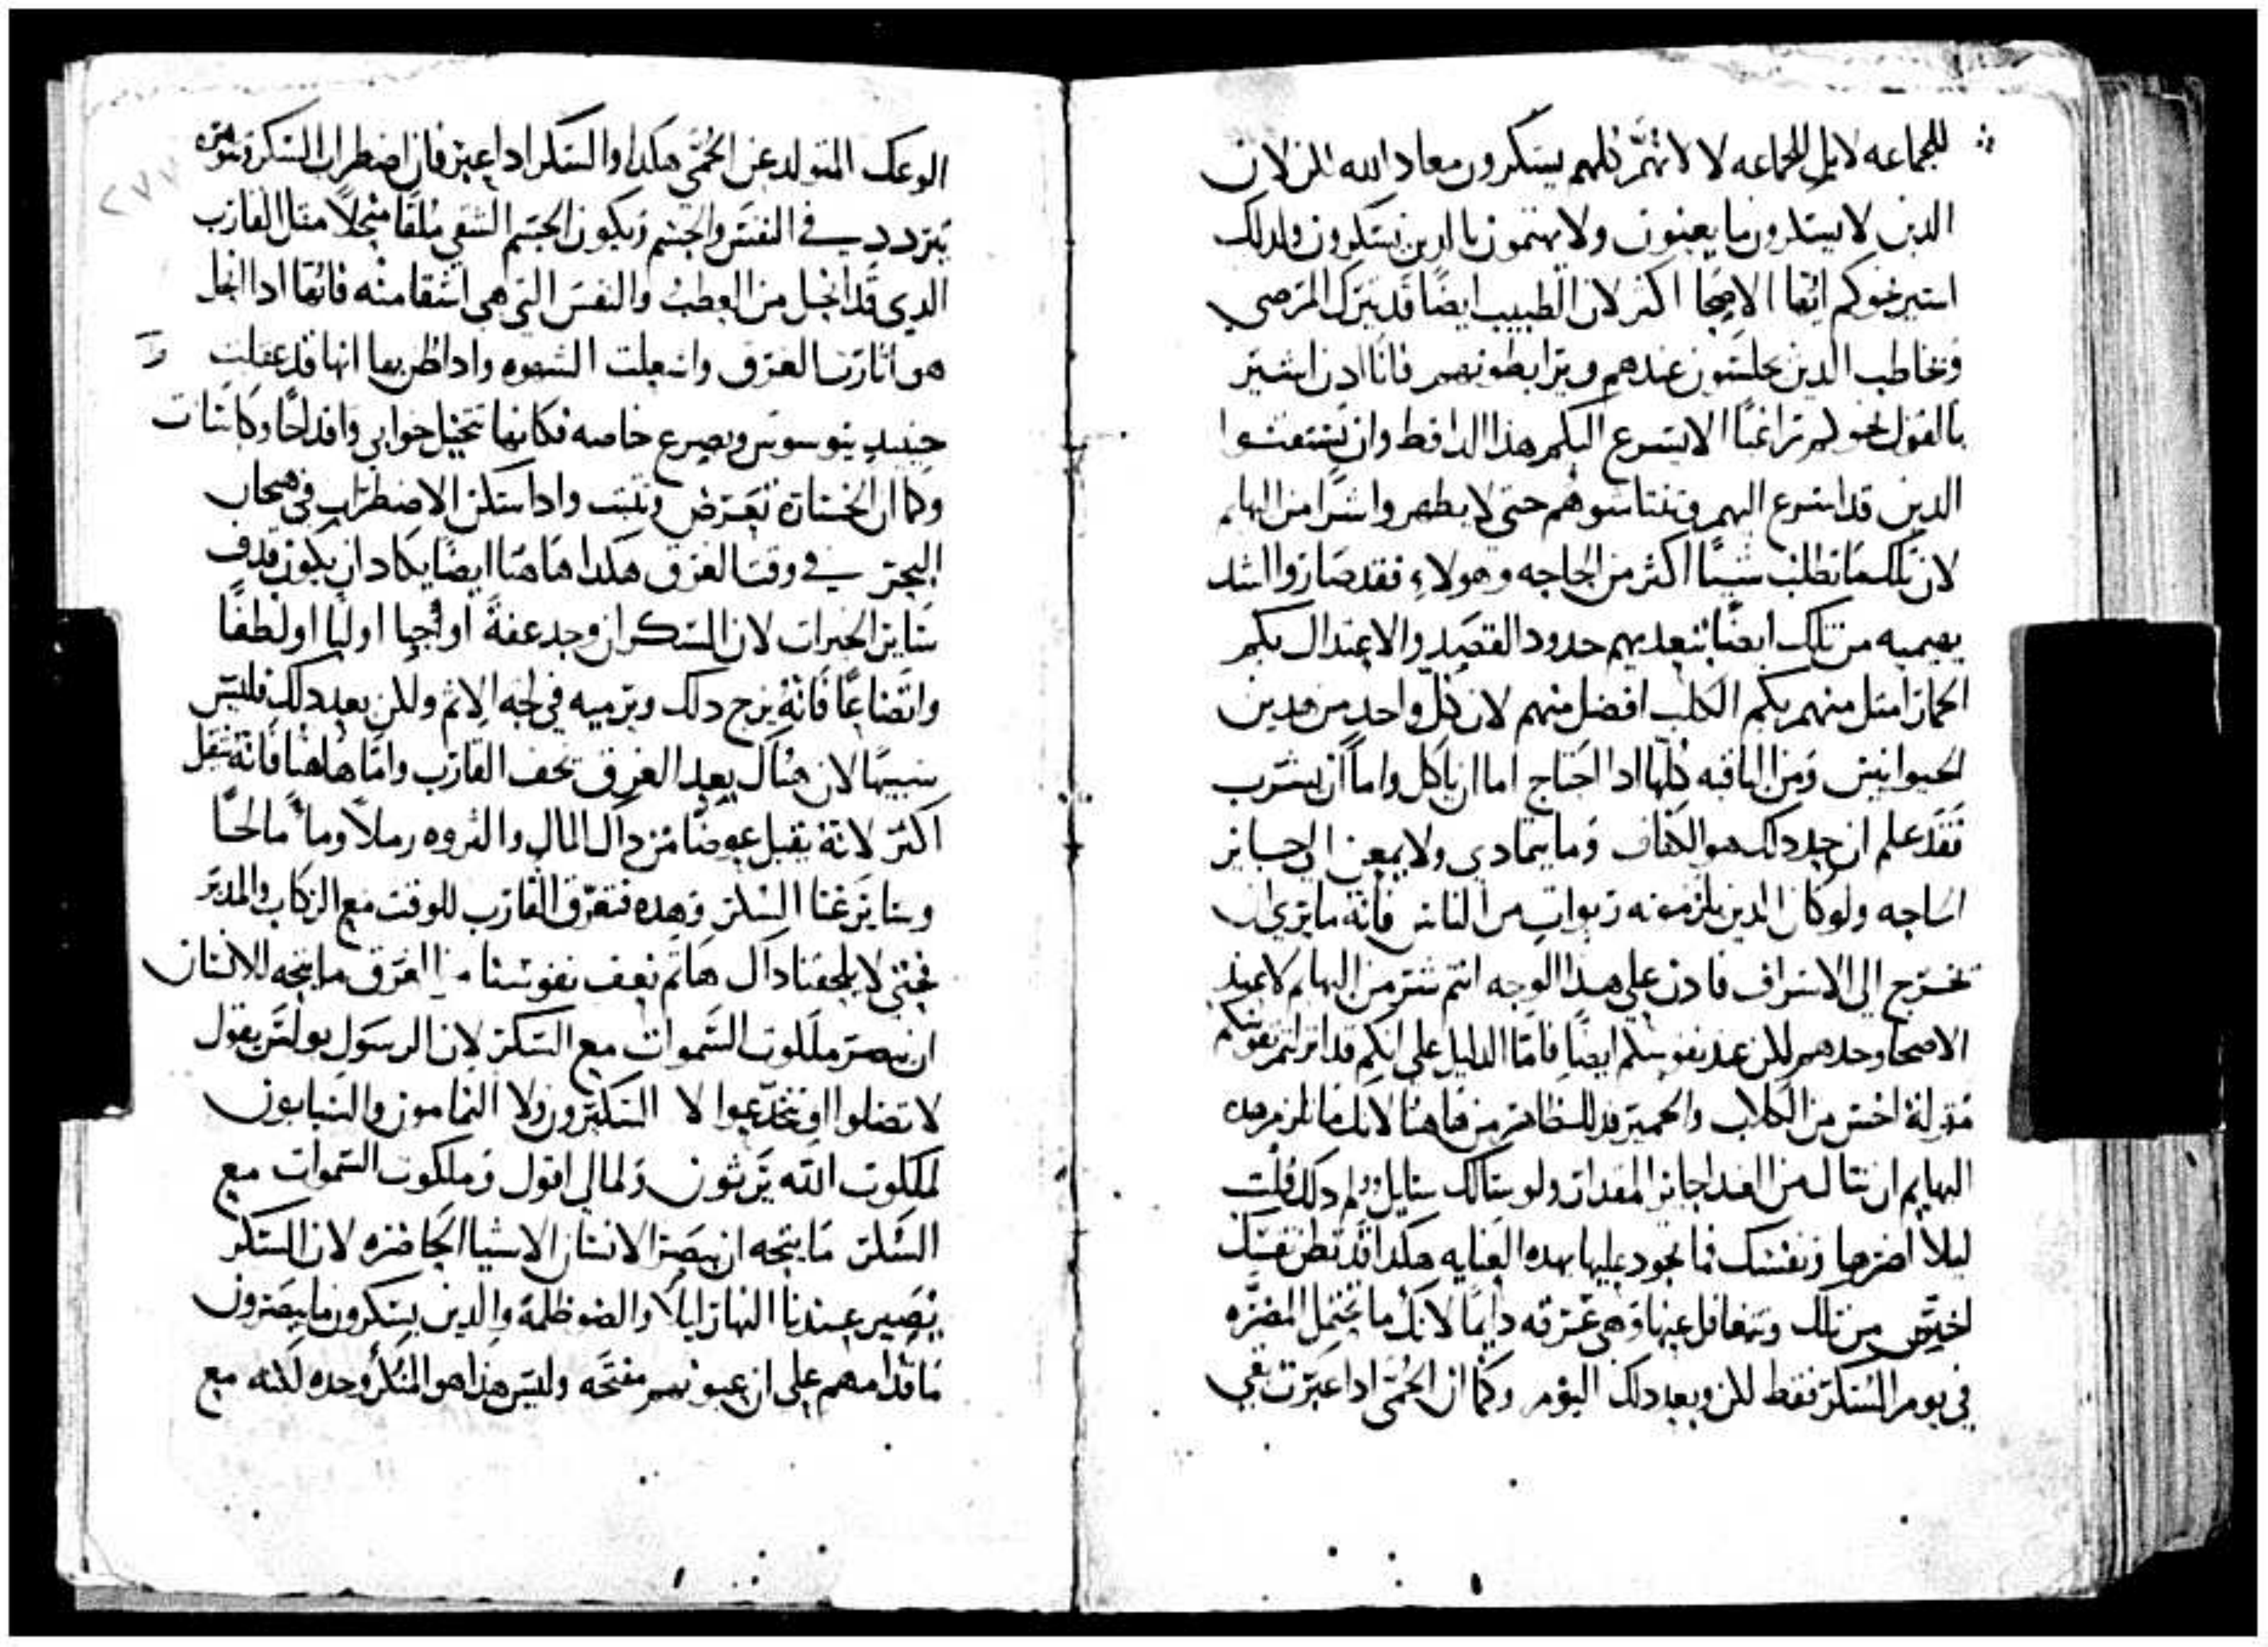 للجماعه لابل للجماعه لا لانهم كلهم يسكرون معاد الله لكن لان
الدين لا يسكرون ما يعنون ولا يهتمون بالدين يسكرون ولدلك
استير نحوكم ايها الاصحا اكتر لان الطبيب ايضا قد يترك المرضي
ويخاطب الدين يجلسون عندهم ويرابطونهم فانا ادن اشير
بالقول نحوكم تراغبا الا يسرع اليكم هدا الدا قط وان تنتعشوا
الدين قد اسرع اليهم وتنتاشوهم حتي لا يظهروا اشر من البهايم
لان تلك ما تطلب شيا اكثر من الحاجه وهولاء فقد صاروا اشد
بهيميه من تلك ايضا بتعديهم حدود القصد والاعتدال بكم
الحمار امثل منهم بكم الكلب افضل منهم لان كل واحد من هدين
الحيوانين ومن الباقيه كلها ادا احتاج اما ان ياكل واما ان يشرب
فقد علم ان حد دلك هو الكفاف وما يتمادي ولا يمعن الي حسايز
اساجه ولو كان الدين يلزمونه ربوات من الناس فانه ما يري ان
يخرج الي الاسراف فادن علي هدا الوجه انتم شر من البهايم لا عند
الاصحا وحدهم لكن عند نفوسكم ايضا فاما الدليل علي انكم قد انزلتم نفوسكم
منزله اخس من الكلاب والحمير فدلك ظاهر من هاهنا لانك ما تلزم هده
البهايم ان تنال من الغدا جايز المقدار ولو سالك سايل ولم دلك قلت
ليلا اضرها ونفسك فما تجود عليها بهده العنايه هكدا قد تظن نفسك
اخس من تلك وتتغافل عنها وهي غرقه دايما لانك ما تحتمل المضره
في يوم السكر فقط لكن وبعد دلك اليوم وكما ان الحمي ادا عبرت بقي
الوعك المتولد عن الحمي هكدا والسكر ادا عبر فان اضطراب السكر وشره
يتردد في النفس والجسم ويكون الجسم الشقي ملقا منحلا متل القارب
الدي قد انحل من العطب والنفس التي هي اشقا منه فانها ادا انحل
هو اثارت الغرق واشعلت الشهوه وادا ظن بها انها قد عقلت
حينيد يتوسوس ويصرع خاصه فكانها تتخيل خوابي واقداحا وكاسات
وكما ان الخسارة تعرض وتثبت وادا سكن الاضطراب في هيجان
البحر في وقت الغرق هكدا هاهنا ايضا يكاد ان يكون قدف
ساير الخيرات لان السكر ان وجد عفة او حيا او لبا او لطفا
واتضاعا فانه يزج دلك ويرميه في لجه الاثم ولكن بعد دلك فليس
شبيها لان هناك بعد الغرق يخف القارب واما هاهنا فانه يثقل
اكثر لانه يقبل عوضا من داك المال والثروه رملا وماء مالحا
وساير غثا السكر وهده فتغرق القارب للوقت مع الركاب والمدبر
فحتي لا يلحقنا داك هاتم نعف نفوسنا من الغرق ما يتجه للانسان
ان يبصر ملكوت السموات مع السكر لان الرسول بولس يقول
لا تضلوا او تخدعوا لا السكيرون ولا النمامون والسبابون
لملكوت الله يرثون ولمالي اقول وملكوت السموات مع
السكر ما يتجه ان يبصر الانسان الاشيا الحاضره لان السكر
يصير عندنا النهار ليلا والضو ظلمه والدين يسكرون ما يبصرون
ما قدامهم علي ان عيونهم مفتحه وليس هدا هو المنكر وحده لكنه مع